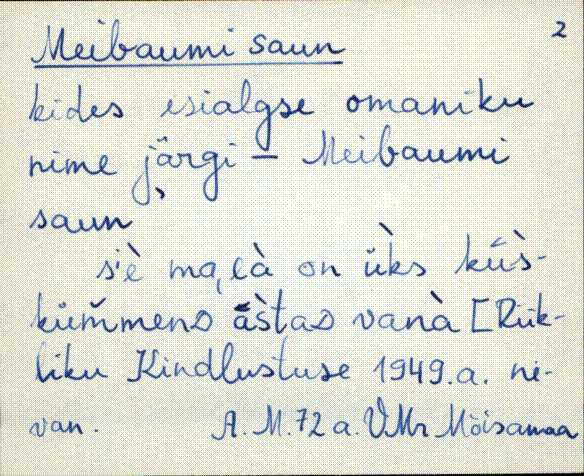 2
Meibaumi saun
kides esialgse omaniku
nime järgi – Meibaumi
saun
s'è ma,ià on ùks kús-
kùm̆menD àštaD vanà [Riik-
liku Kindlustuse 1949.a. ni-
van. A.M.72 a. VMr Mõisamaa